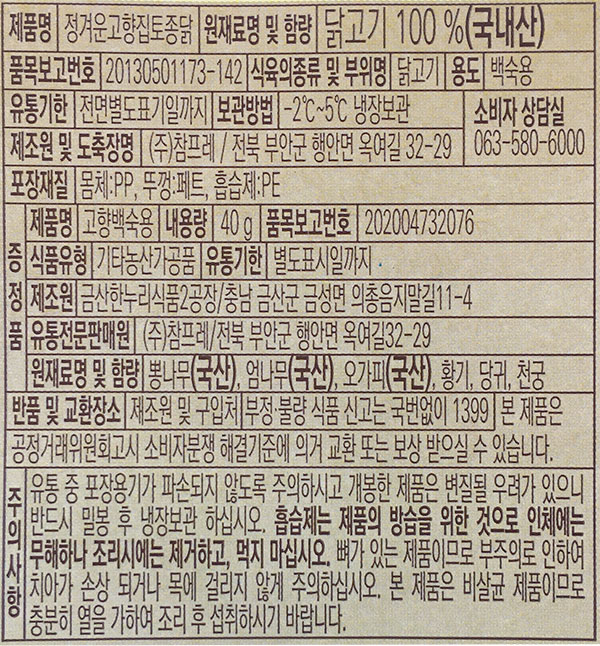 제품명 정겨운고향집토종닭 원재료명 및 함량 닭고기 100 %(국내산)
품목보고번호 20130501173-142 식육의종류 및 부위명 닭고기 용도 백숙용
유통기한 전면별도표기일까지 보관방법 -2℃~5℃ 냉장보관 소비자 상담실
제조원 및 도축장명 (주)참프레 / 전북 부안군 행안면 옥여길 32-29 063-580-6000
포장재질 몸체:PP, 뚜껑:페트, 흡습제:PE
증정품
제품명 고향백숙용 내용량 40 g 품목보고번호 202004732076
식품유형 기타농산가공품 유통기한 별도표시일까지
제조원 금산한누리식품2공장/충남 금산군 금성면 의총음지말길11-4
유통전문판매원 (주)참프레/전북 부안군 행안면 옥여길32-29
원재료명 및 함량 뽕나무(국산), 엄나무(국산), 오가피(국산), 황기, 당귀, 천궁
반품 및 교환장소 제조원 및 구입처 부정·불량 식품 신고는 국번없이 1399 본 제품은
공정거래위원회고시 소비자분쟁 해결기준에 의거 교환 또는 보상 받으실 수 있습니다.
주의사항
유통 중 포장용기가 파손되지 않도록 주의하시고 개봉한 제품은 변질될 우려가 있으니
반드시 밀봉 후 냉장보관 하십시오. 흡습제는 제품의 방습을 위한 것으로 인체에는
무해하나 조리시에는 제거하고, 먹지 마십시오. 뼈가 있는 제품이므로 부주의로 인하여
치아가 손상 되거나 목에 걸리지 않게 주의하십시오. 본 제품은 비살균 제품이므로
충분히 열을 가하여 조리 후 섭취하시기 바랍니다.